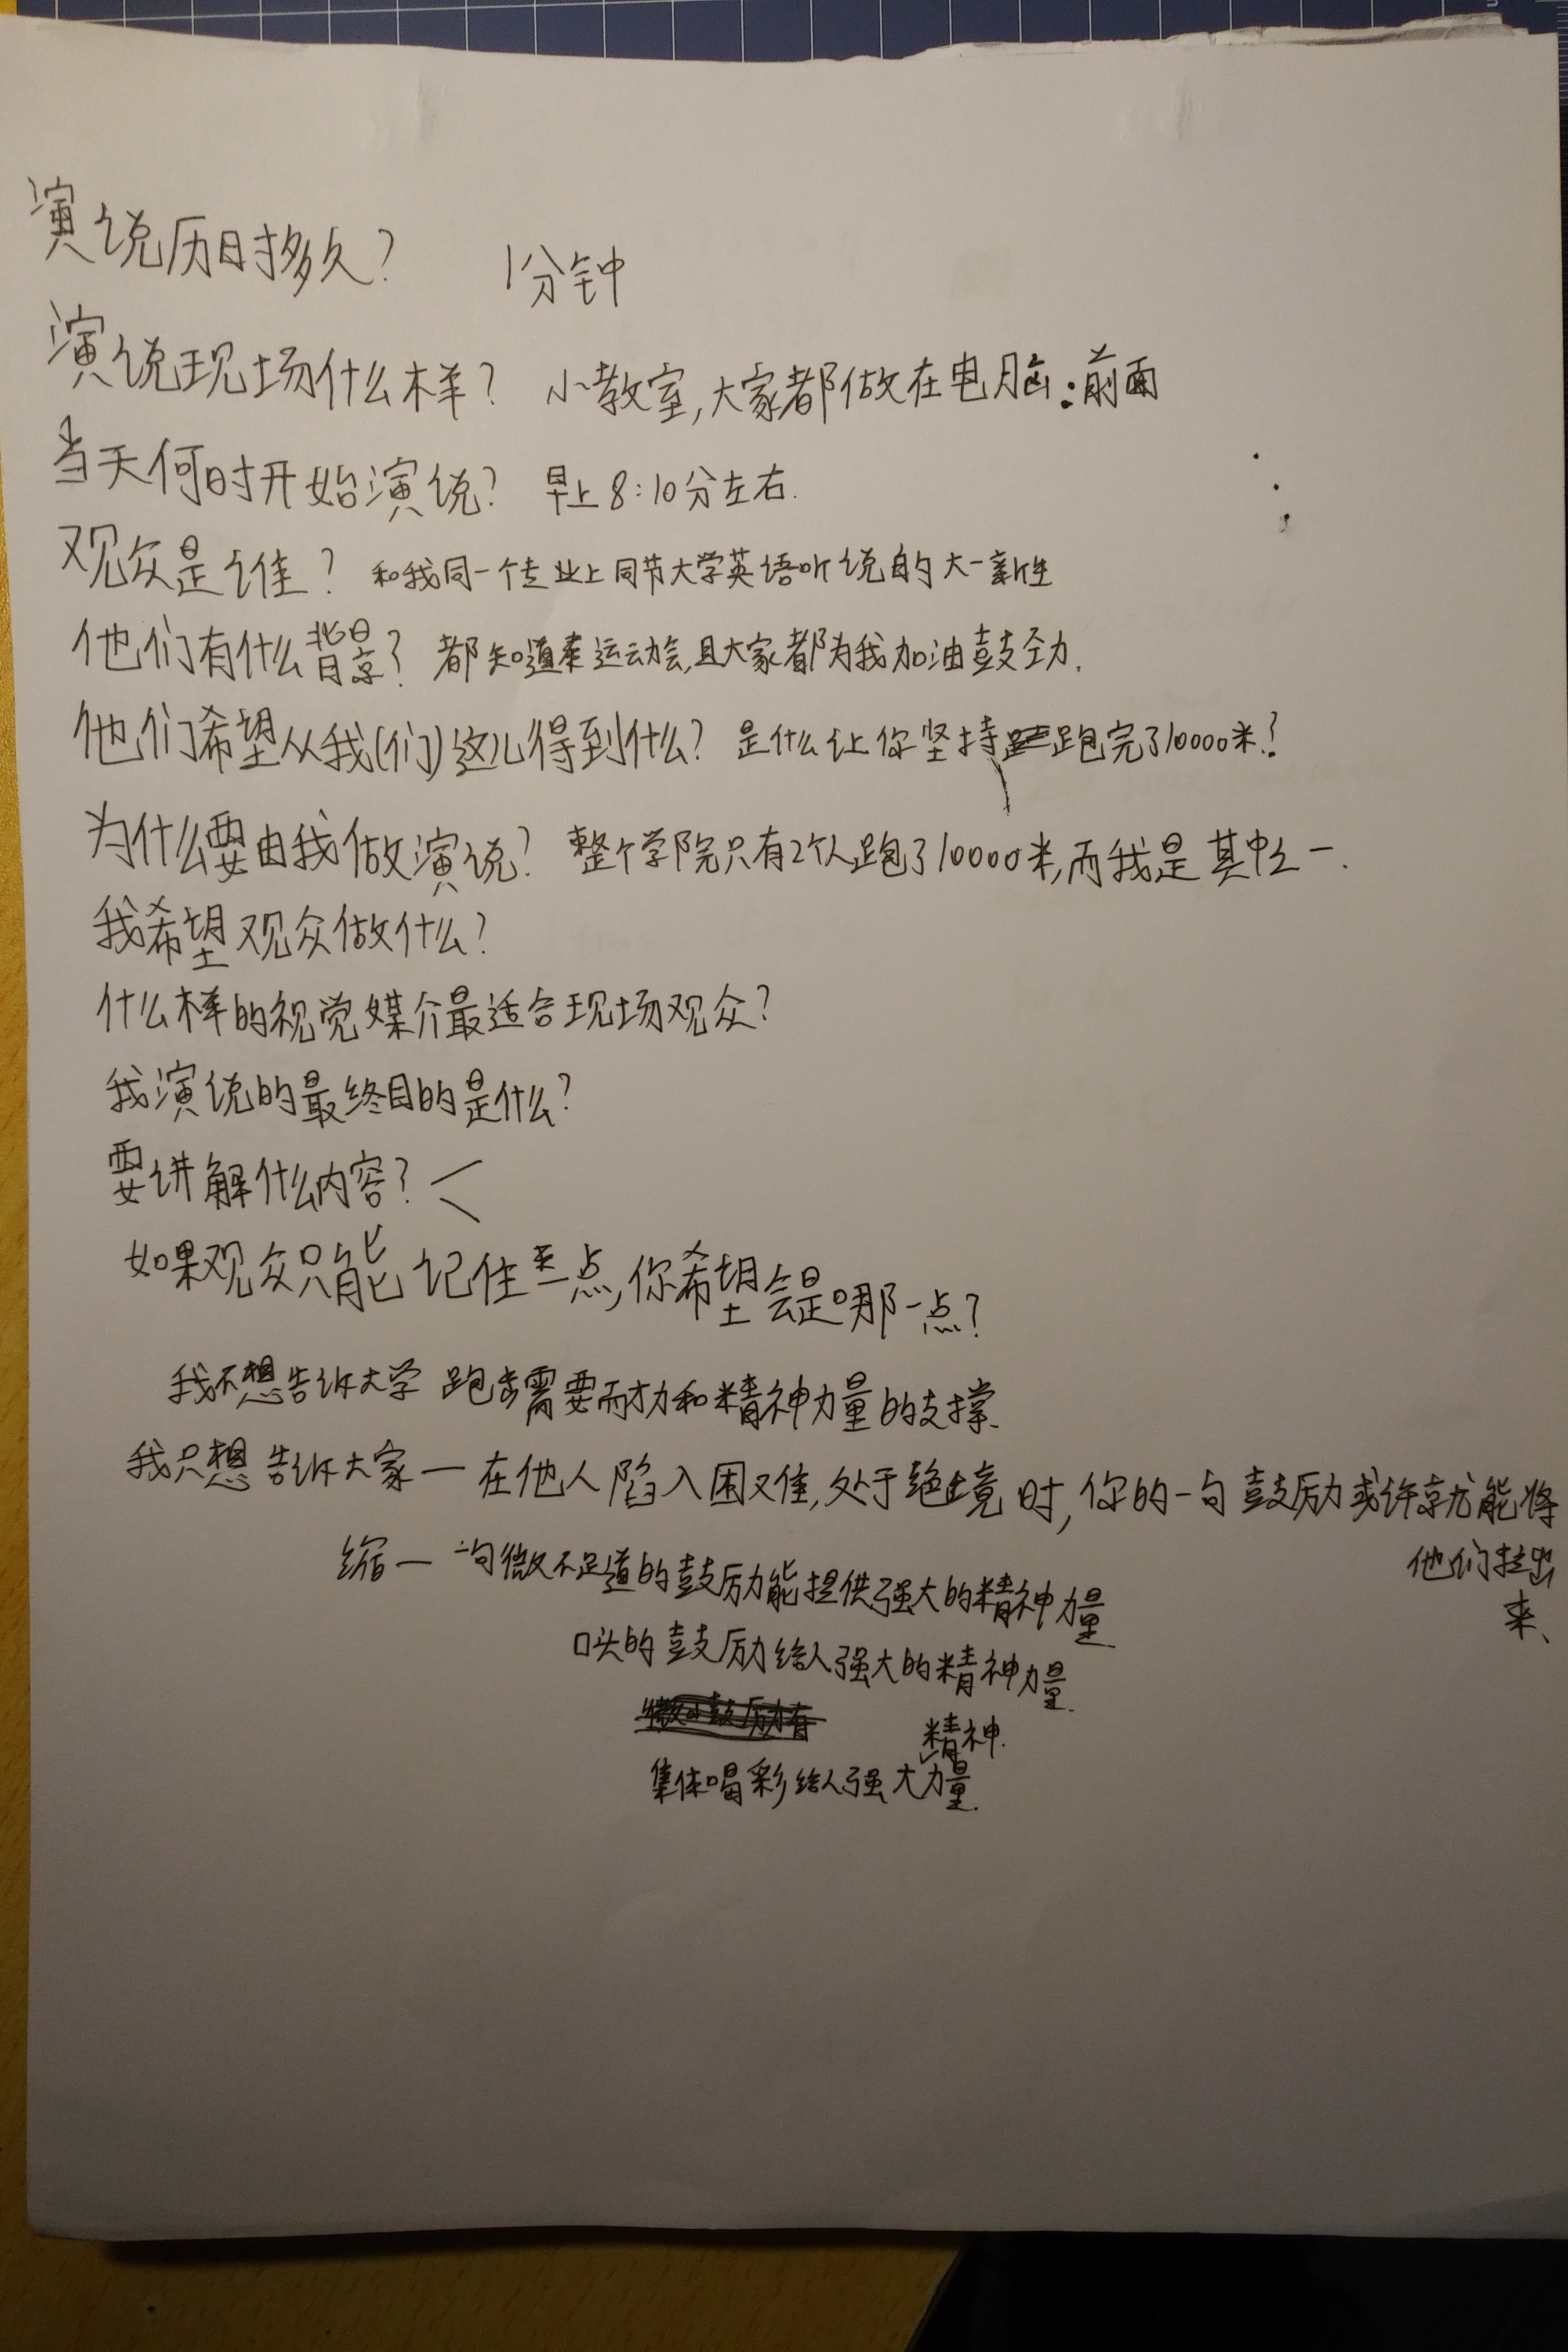 演说历时多久? 1分钟
演说现场什么样? 小教室,大家都做在电脑前面
当天何时开始演说? 早上8:10分左右.
观众是谁? 和我同一个专业上同节大学英语听说的大一新生
他们有什么背景? 都知道 运动会,且大家都为我加油鼓劲.
他们希望从我(们)这儿得到什么? 是什么让你坚持跑完了10000米?
为什么要由我做演说? 整个学院只有2个人跑了10000米,而我是其中之一.
我希望观众做什么?
什么样的视觉媒介最适合现场观众?
我演说的最终目的是什么?
要讲解什么内容?
如果观众只能记住一点,你希望会是哪一点?
我不想告诉大学 跑步需要耐力和精神力量的支撑.
我只想告诉大家—在他人陷入困难,处于绝境时,你的一句鼓励或许就能将
他们拉出
来、
缩— 一句微不足道的鼓励能提供强大的精神力量
口头的鼓励给人强大的精神力量.
精神.
集体喝彩给人强大力量.